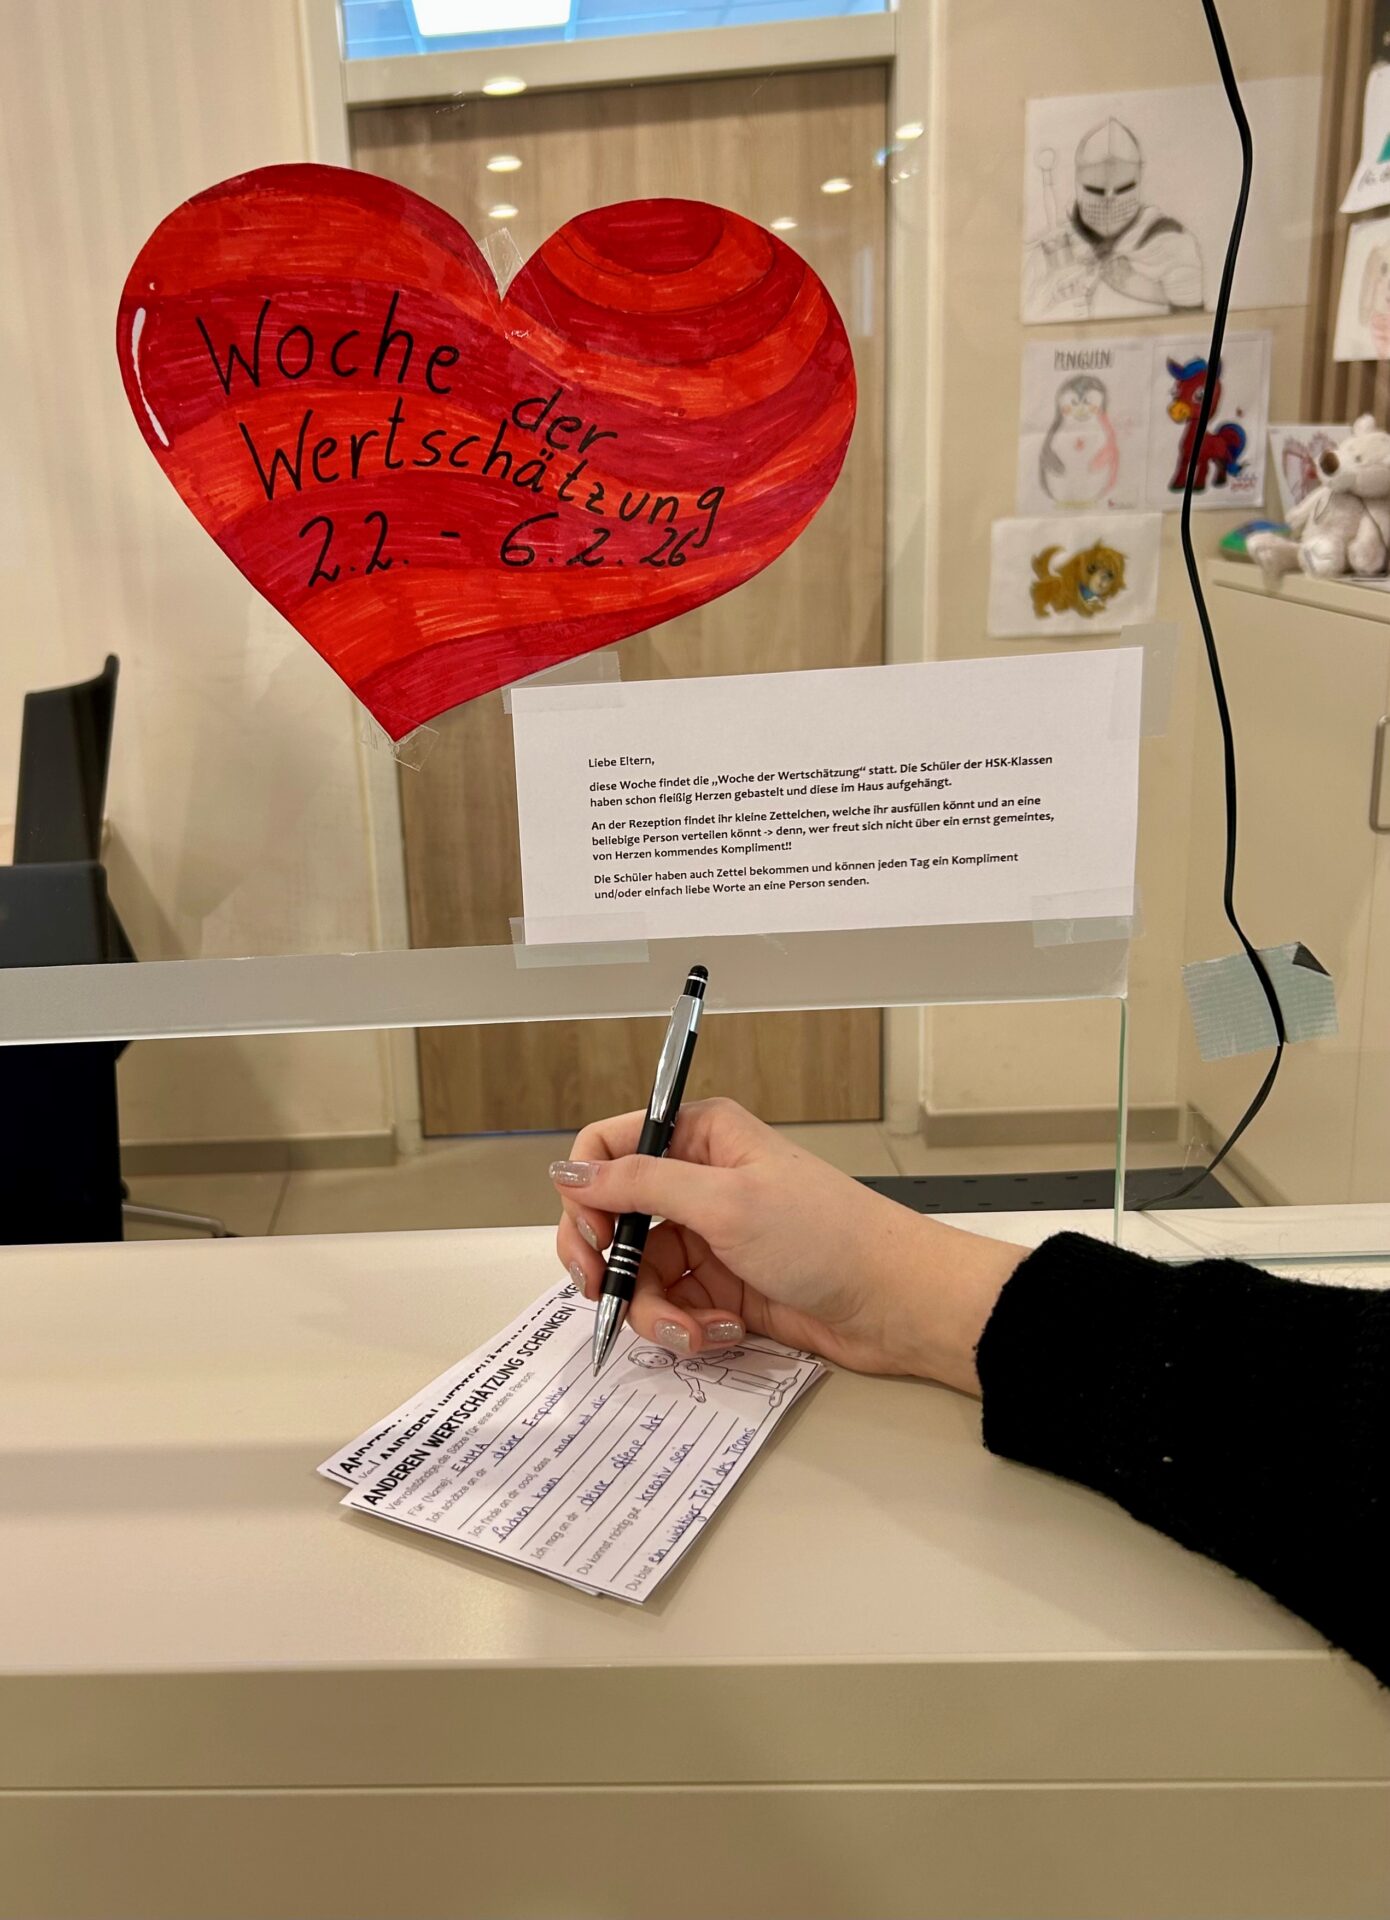 Woche
der
Wertschätzung
2.2. - 6.2.26
PENGUIN
Liebe Eltern,
diese Woche findet die „Woche der Wertschätzung“ statt. Die Schüler der HSK-Klassen
haben schon fleißig Herzen gebastelt und diese im Haus aufgehängt.
An der Rezeption findet ihr kleine Zettelchen, welche ihr ausfüllen könnt und an eine
beliebige Person verteilen könnt -> denn, wer freut sich nicht über ein ernst gemeintes,
von Herzen kommendes Kompliment!!
Die Schüler haben auch Zettel bekommen und können jeden Tag ein Kompliment
und/oder einfach liebe Worte an eine Person senden.
ANDEREN WERTSCHÄTZUNG SCHENKEN
Vervollständige die Sätze für eine andere Person.
Für (Name): EMMA
Ich schätze an dir deine Empathie
Ich finde an dir cool, dass man mit dir
lachen kann
Ich mag an dir deine offene Art
Du kannst richtig gut kreativ sein
Du bist ein wichtiger Teil des Teams